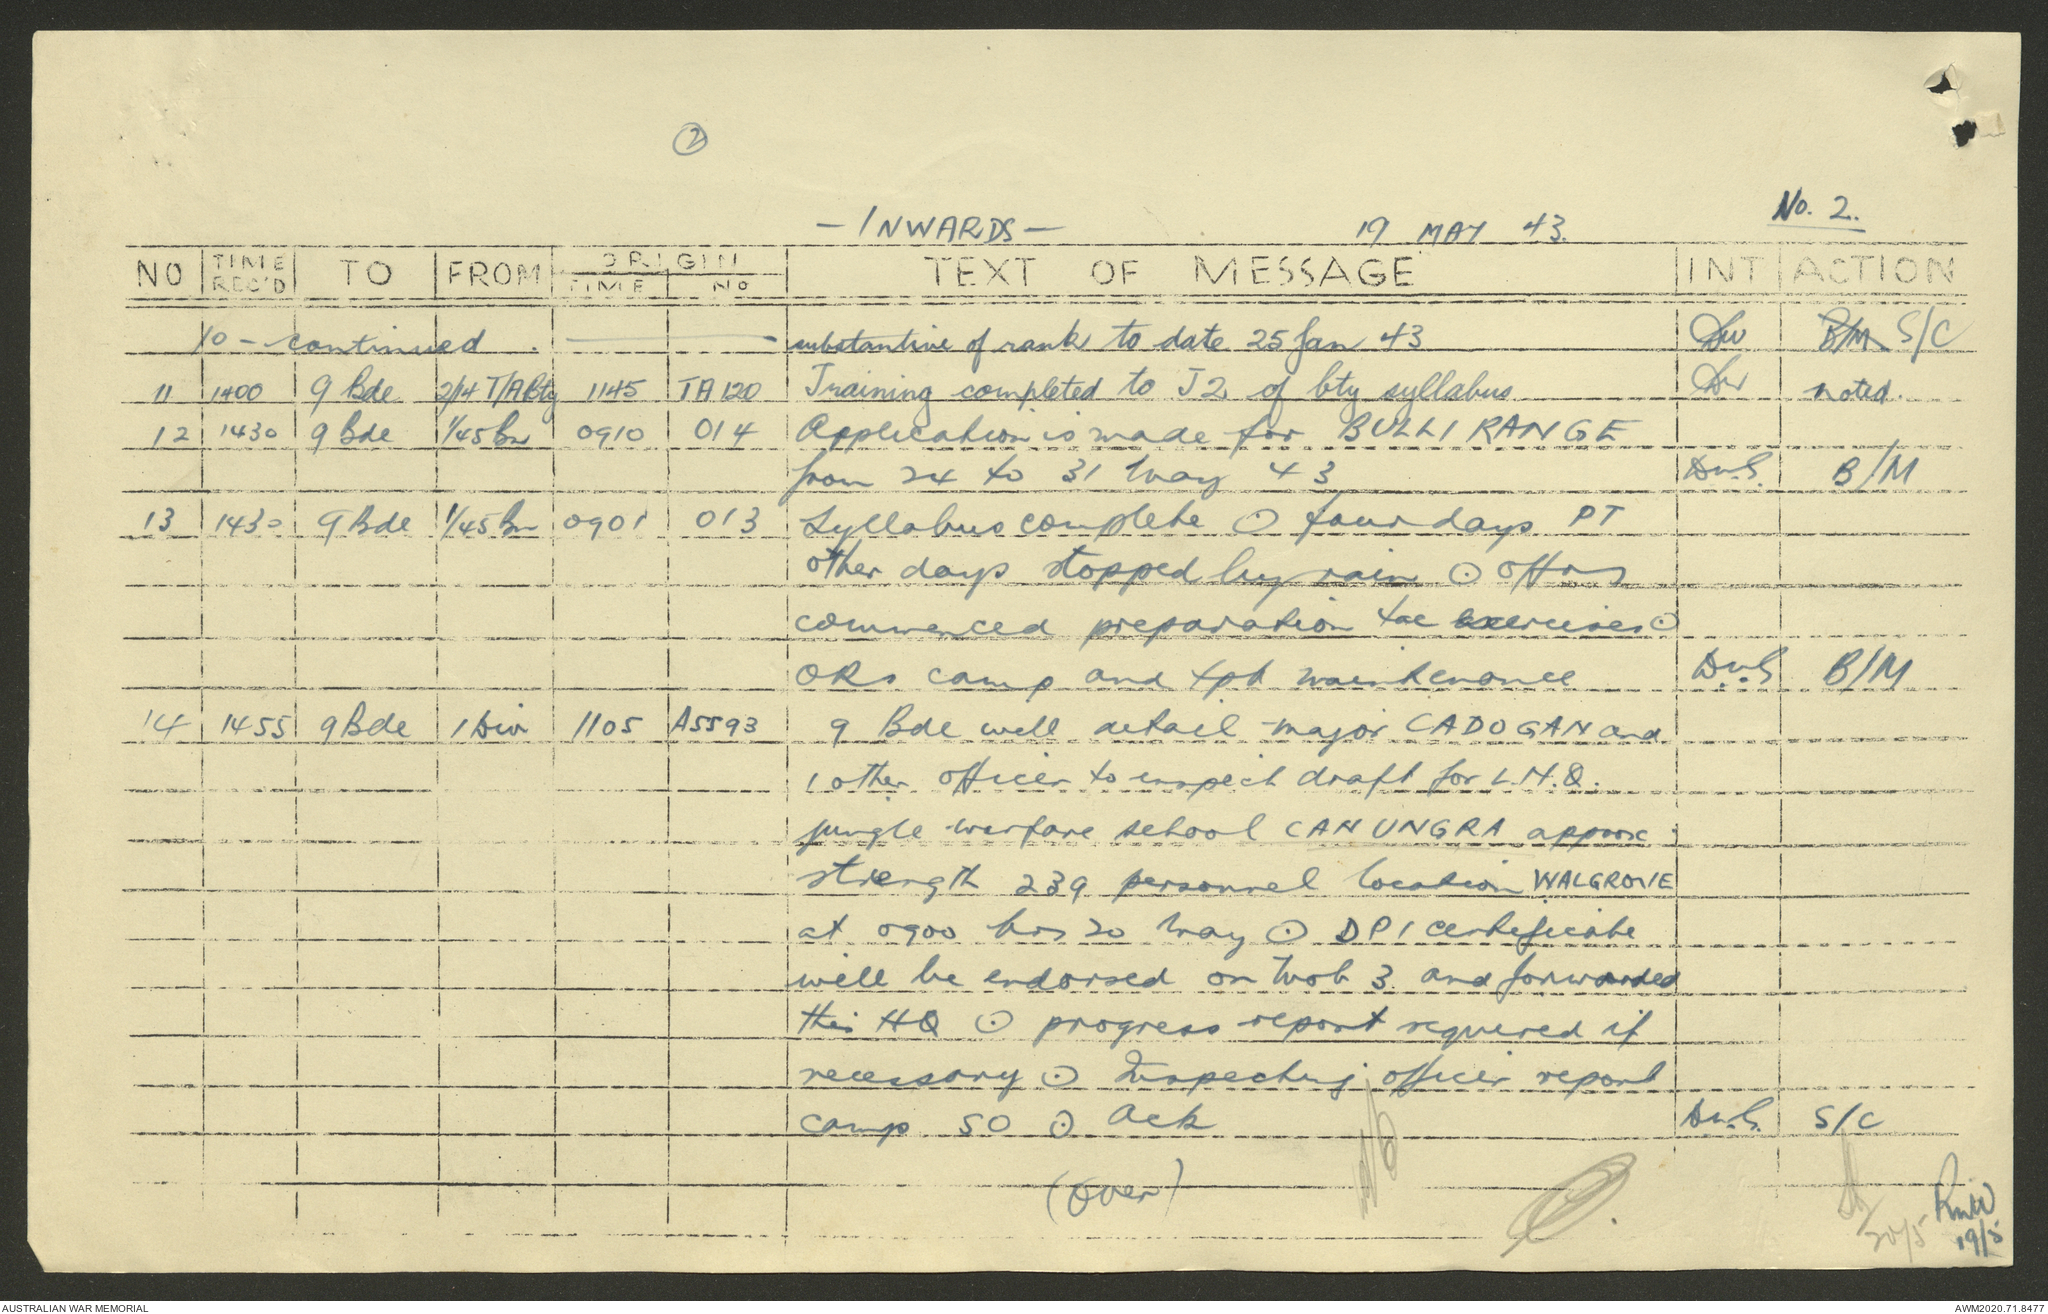 2
- INWARDS - 19 MAY 43. No. 2.
NO TIME REC'D TO FROM ORIGIN TIME No TEXT OF MESSAGE INT ACTION
10 - continued. substantive of rank to date 25 Jan 43 DW B/M S/C
11 1400 9 Bde 2/14 T/A Bty 1145 TA120 Training completed to J2 of bty syllabus DW noted.
12 1430 9 Bde 1/45 Bn 0910 014 Application is made for BULLI RANGE
from 24 to 31 May 43 B/M
13 1430 9 Bde 1/45 Bn 0901 013 Syllabus complete ⊙ four days PT
other days stopped by rain ⊙ offrs
commenced preparation tac exercises ⊙
ORs camp and tpt maintenance B/M
14 1455 9 Bde 1 Div 1105 A5593 9 Bde will detail major CADOGAN and
1 other officer to inspect draft for L.H.Q.
jungle warfare school CANUNGRA approx
strength 239 personnel location WALGROVE
at 0900 hrs 20 May ⊙ DP1 certificate
will be endorsed on Mob 3 and forwarded
this HQ ⊙ progress report required if
necessary ⊙ Inspecting officer report
camp SO ⊙ Ack S/C
(over)
20/5
19/5
AUSTRALIAN WAR MEMORIAL AWM2020.71.8477